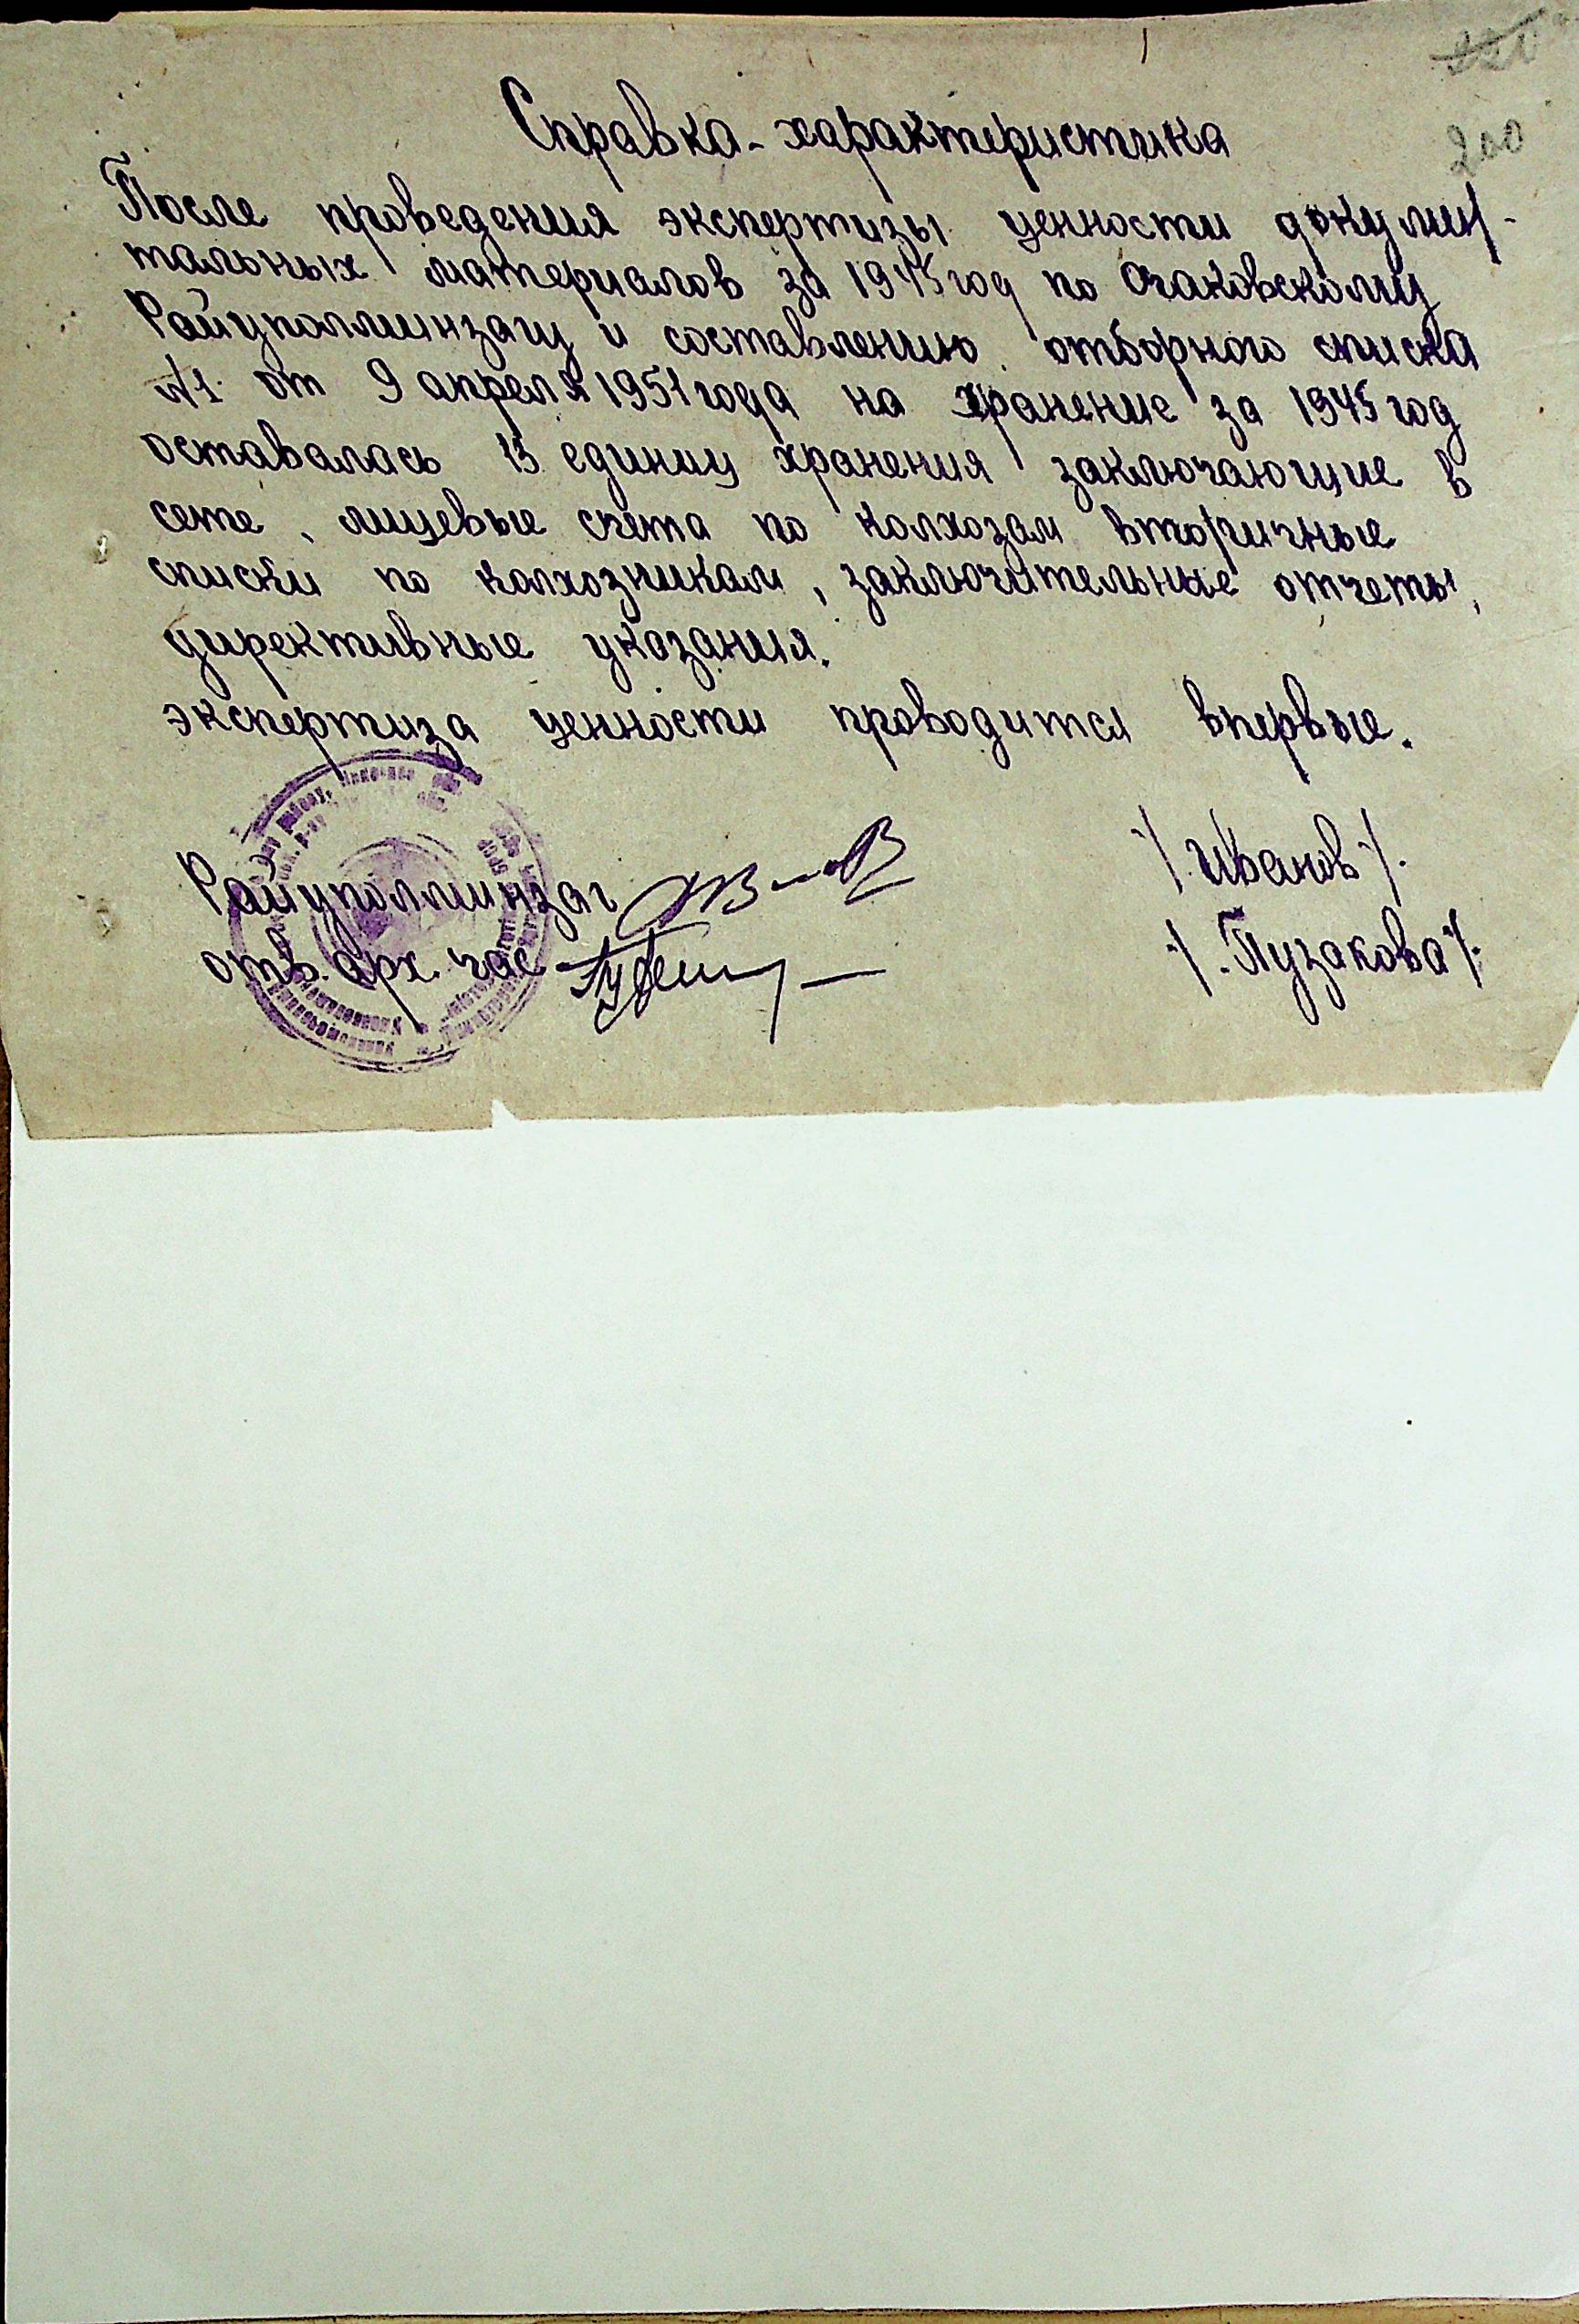 220
200
Справка-характеристика
После проведения экспертизы ценности докумен-
тальных материалов за 1945 год по Очаковскому
Райуполминзагу и составлению отборного списка
№1 от 9 апреля 1951 года на хранение за 1945 год
оставалась 13 единиц хранения заключающие в
сете, лицевые счета по колхозам вторичные
списки по колхозникам, заключительные отчеты,
директивные указания.
экспертиза ценности проводится впервые.
Райуполминзаг /Иванов/.
отв. арх. час /.Пузакова/.